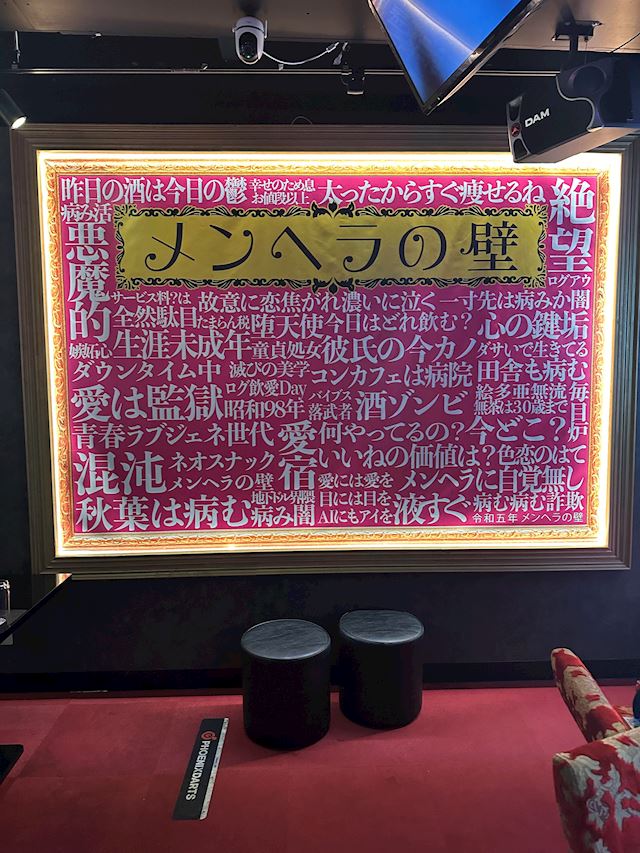 DAM
昨日の酒は今日の鬱 幸せのため息 お値段以上 太ったからすぐ痩せるね 絶望
病み活
悪魔的
メンヘラの壁
ログアウ
サービス料?は 故意に恋焦がれ濃いに泣く 一寸先は病みか闇
全然駄目 たまらん税 堕天使 今日はどれ飲む? 心の鍵垢
嫉妬心 生涯未成年 童貞処女 彼氏の今カノ ダサいで生きてる
ダウンタイム中 滅びの美学 コンカフェは病院 田舎も病む
愛は監獄 ログ飲愛Day 昭和98年 バイブス 落武者 酒ゾンビ 絵多亜無流 無茶は30歳まで 毎日炉
青春ラブジェネ世代 愛 何やってるの? 今どこ?
混沌 ネオスナック メンヘラの壁 宿 いいねの価値は? 色恋のはて
愛には愛を メンヘラに自覚無し
秋葉は病む 病み闇 目には目を AIにもアイを 液すぐ 病む病む詐欺
令和五年 メンヘラの壁
PHOENIXDARTS